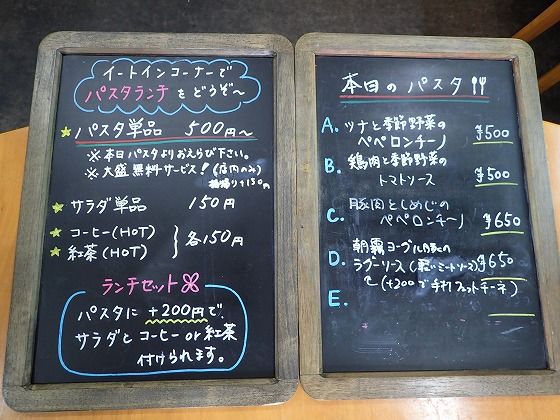 イートインコーナーで
パスタランチをどうぞ〜
★パスタ単品 500円〜
※本日パスタよりおえらび下さい。
※大盛無料サービス！(店内のみ)
+150円
★サラダ単品 150円
★コーヒー(HOT)
★紅茶(HOT)
各150円
ランチセット
パスタに+200円で、
サラダとコーヒーor紅茶
付けられます。
本日のパスタ
A. ツナと季節野菜の
ペペロンチーノ ¥500
B. 鶏肉と季節野菜の
トマトソース ¥500
C. 豚肉としめじの
ペペロンチーノ ¥650
D. 朝霧ヨーグル豚の
ラグーソース(ミートソース) ¥650
(+200で手打フェットチーネ)
E.